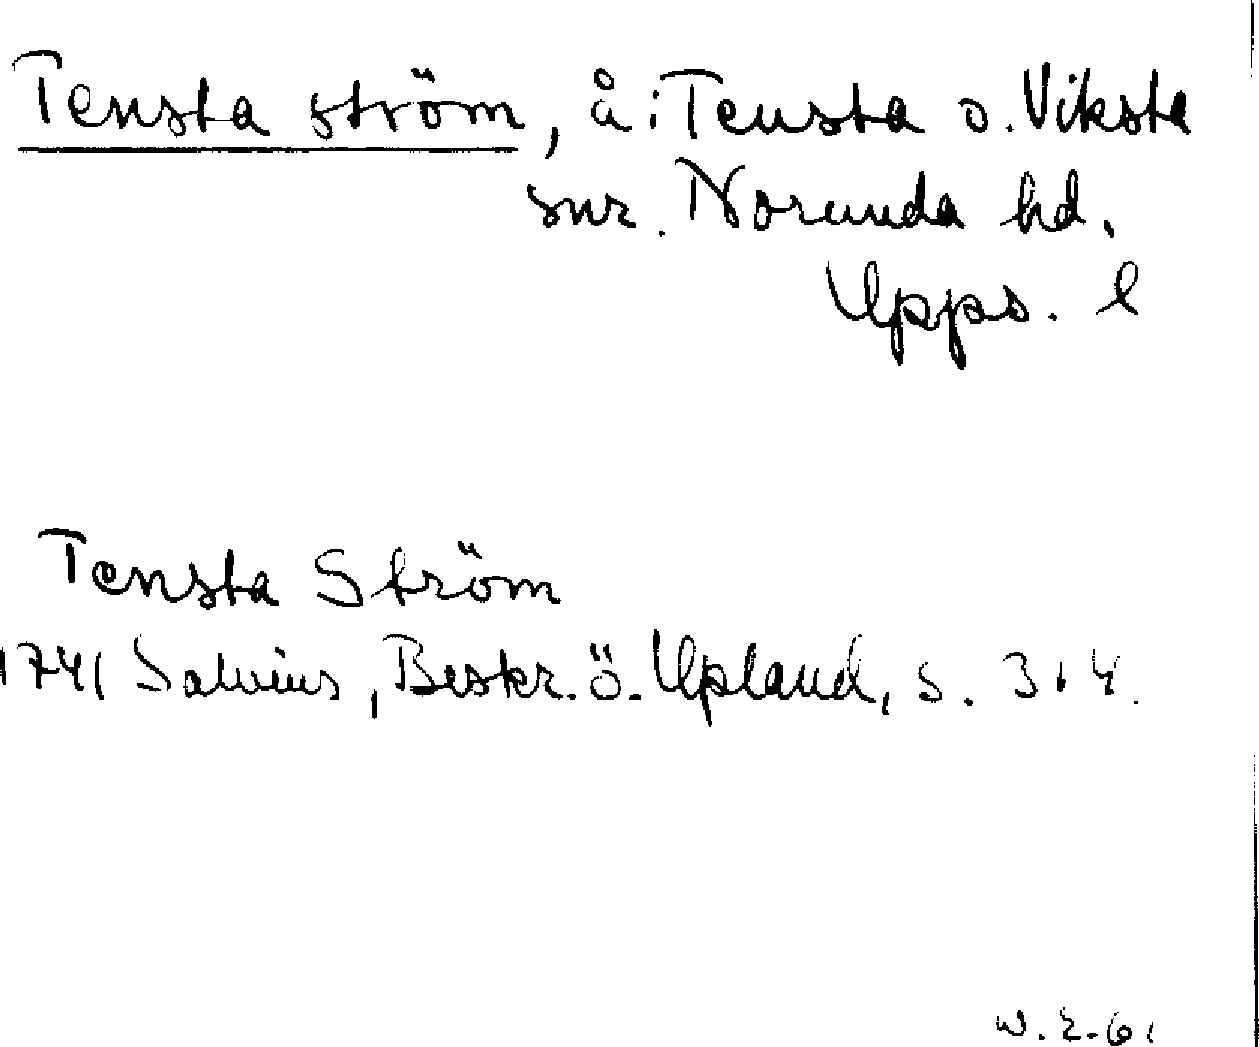 Tensta ström, å i Tensta o. Viksta
snr. Norunda hd.
Upps. l
Tensta Ström
1741 Salvius, Beskr. ö. Upland, s. 314.
W. E-61